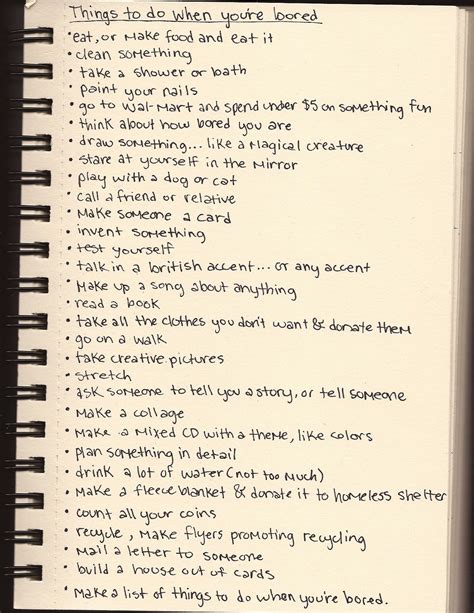 Things to do when you're bored
• eat, or make food and eat it
• clean something
• take a shower or bath
• paint your nails
• go to Wal-Mart and spend under $5 on something fun
• think about how bored you are
• draw something... like a magical creature
• stare at yourself in the mirror
• play with a dog or cat
• call a friend or relative
• make someone a card
• invent something
• test yourself
• talk in a british accent... or any accent
• make up a song about anything
• read a book
• take all the clothes you don't want & donate them
• go on a walk
• take creative pictures
• stretch
• ask someone to tell you a story, or tell someone
• make a collage
• make a mixed CD with a theme, like colors
• plan something in detail
• drink a lot of water (not too much)
• make a fleece blanket & donate it to homeless shelter
• count all your coins
• recycle, make flyers promoting recycling
• mail a letter to someone
• build a house out of cards
• make a list of things to do when you're bored.